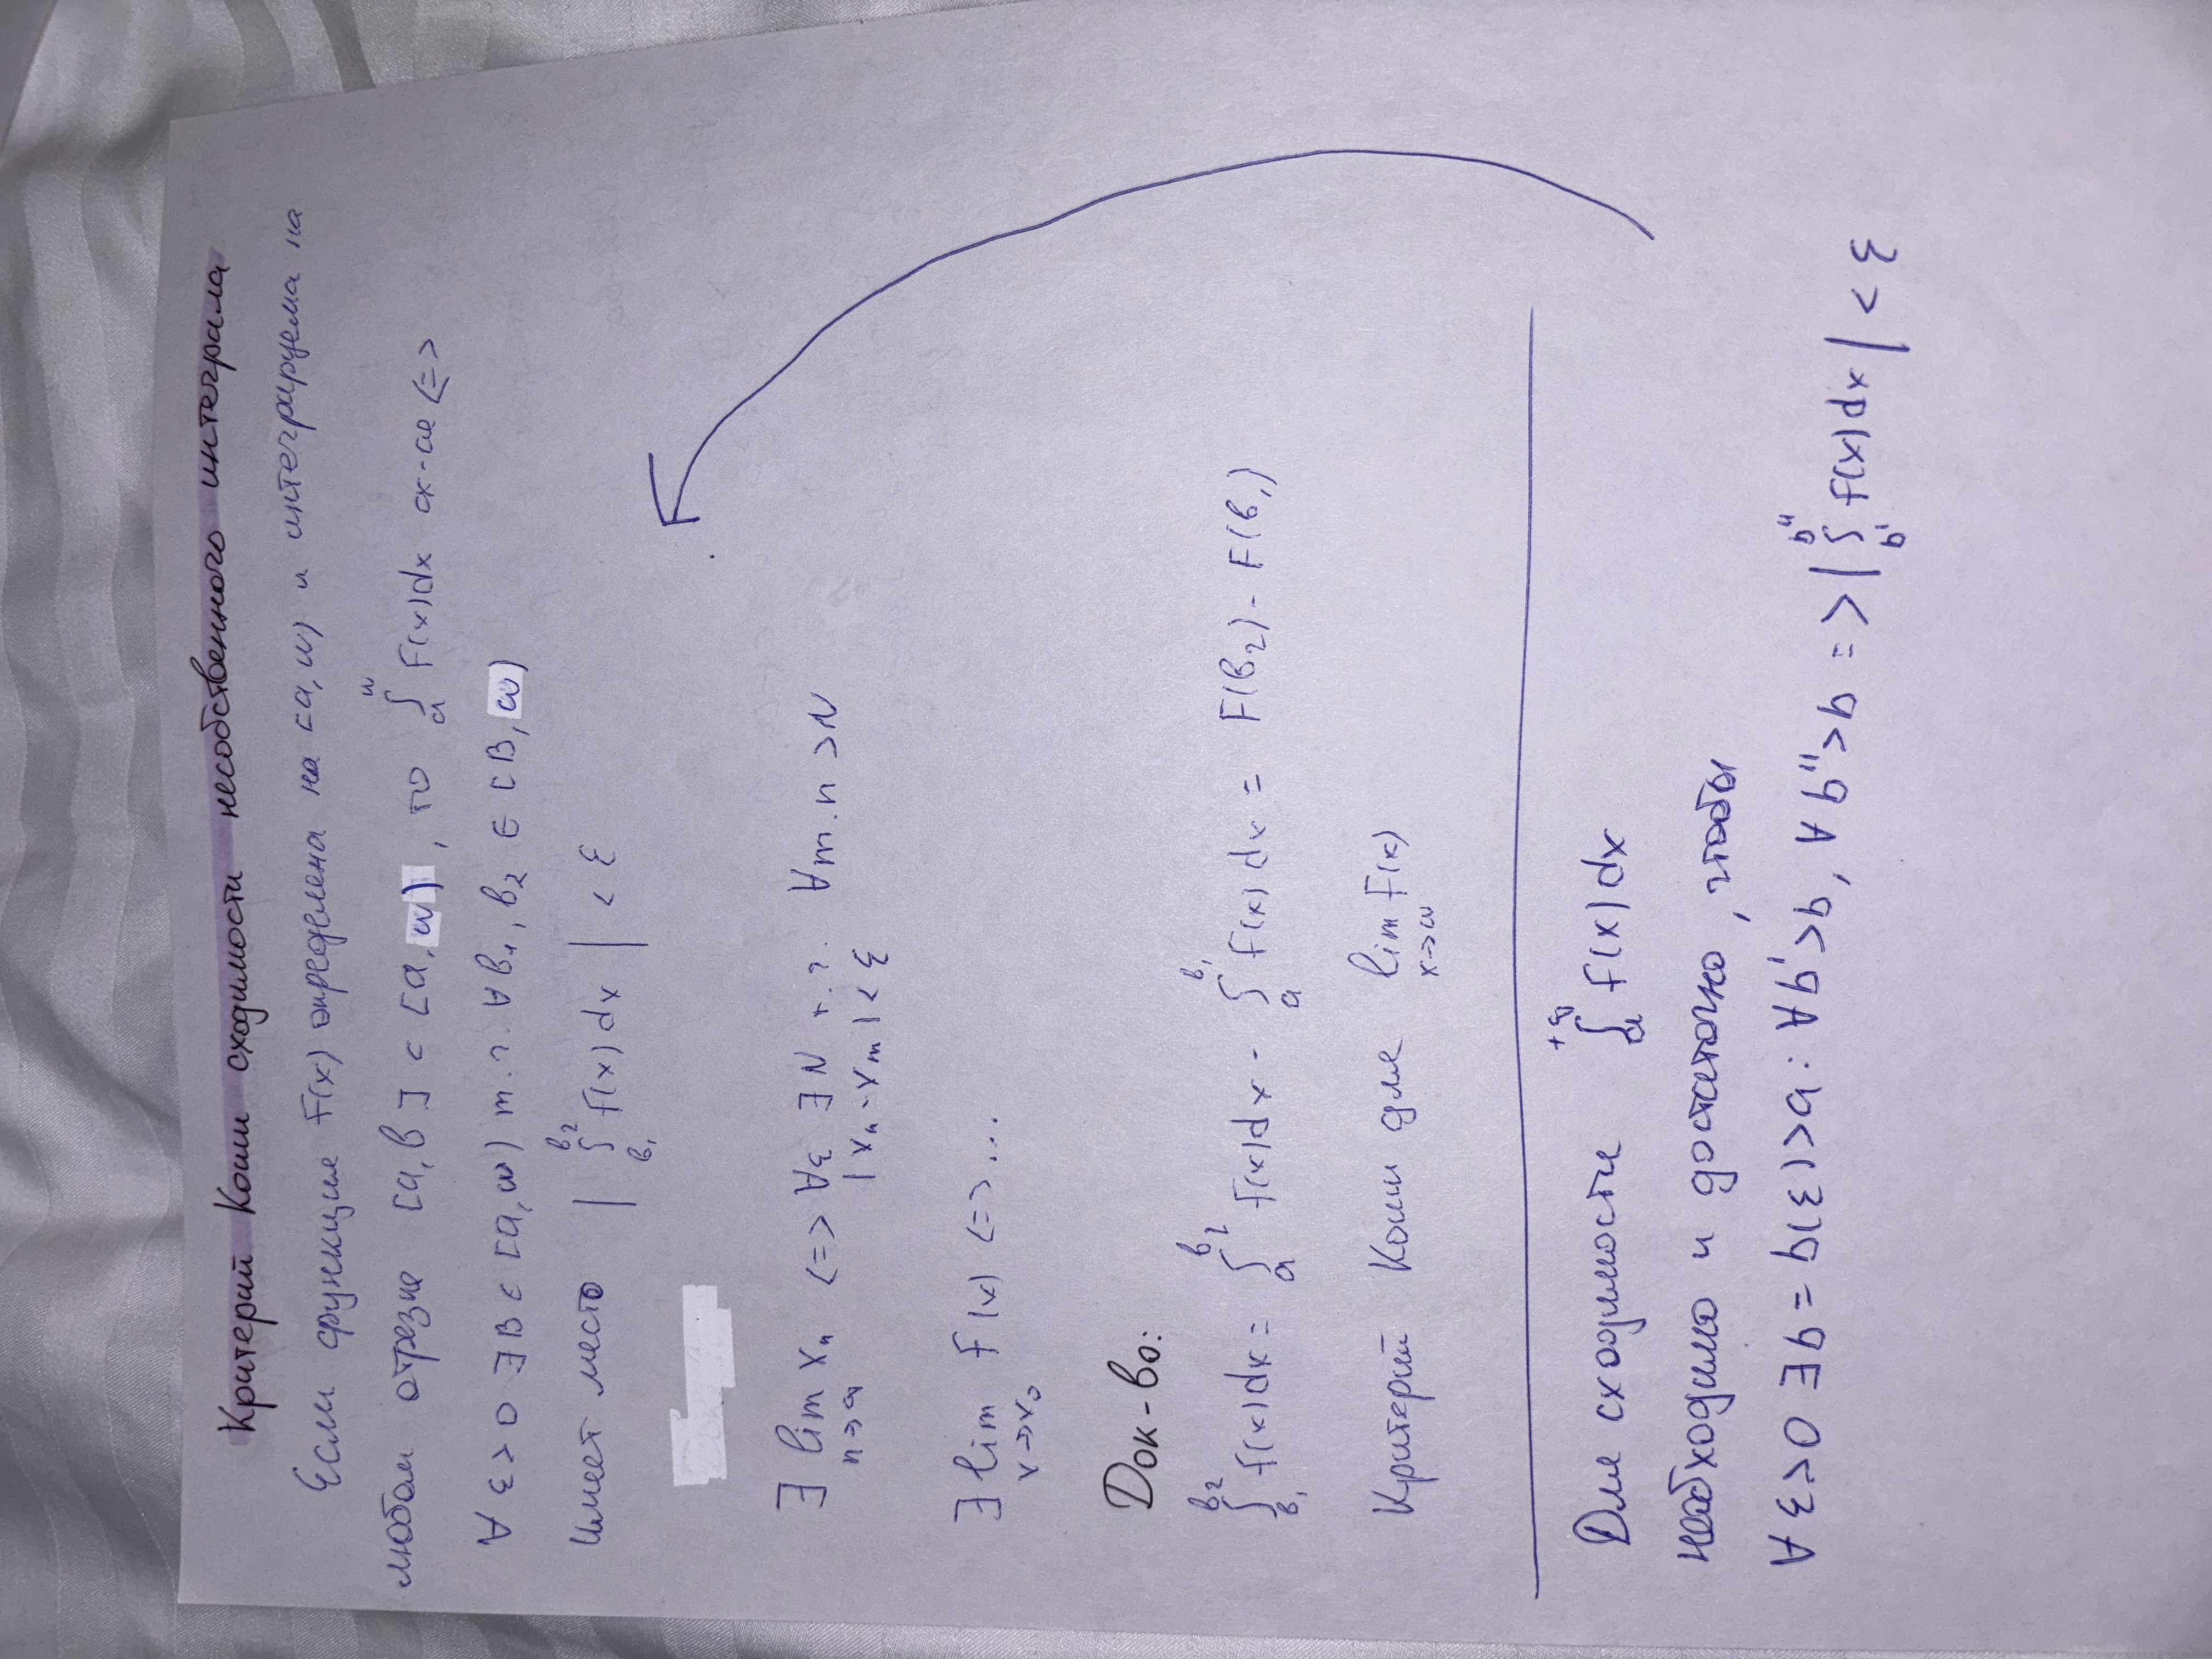 Критерий Коши сходимости несобственного интеграла
Если функция F(x) определена на [a, ω) и интегрируема на
любом отрезке [a, b] ⊂ [a, ω), то ∫ₐ^ω F(x)dx сх-ся <=>
∀ ε > 0 ∃B ∈ [a, ω) т.ч. ∀ b₁, b₂ ∈ [B, ω)
имеет место | ∫_{b₁}^{b₂} f(x)dx | < ε
∃ lim xₙ <=> ∀ε ∃N т.ч. ∀m.n > N
n→∞ |xₙ - xₘ| < ε
∃ lim f(x) <=> ...
x→x₀
Док-во:
∫_{b₁}^{b₂} f(x)dx = ∫ₐ^{b₂} f(x)dx - ∫ₐ^{b₁} f(x)dx = F(b₂) - F(b₁)
Критерий Коши для lim F(x)
x→ω
Для сходимости ∫ₐ^{+∞} f(x)dx
необходимо и достаточно, чтобы
∀ ε>0 ∃b = b(ε)>a : ∀b'>b, ∀b''>b => | ∫_{b'}^{b''} f(x)dx | < ε